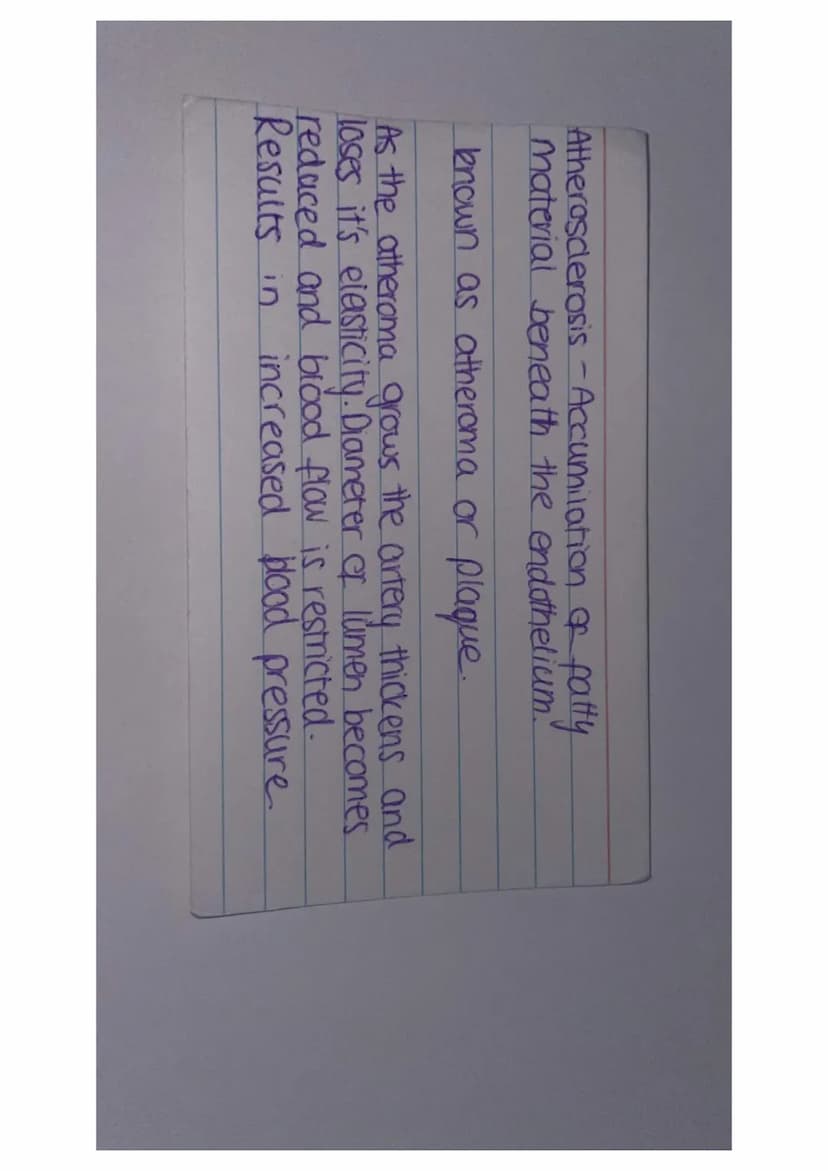 Atherosclerosis - Accumilation of fatty
material beneath the endothelium.
known as atheroma or plaque.
As the atheroma grows the artery thickens and
loses it's elasticity. Diameter of lumen becomes
reduced and blood flow is restricted.
Results in increased blood pressure.